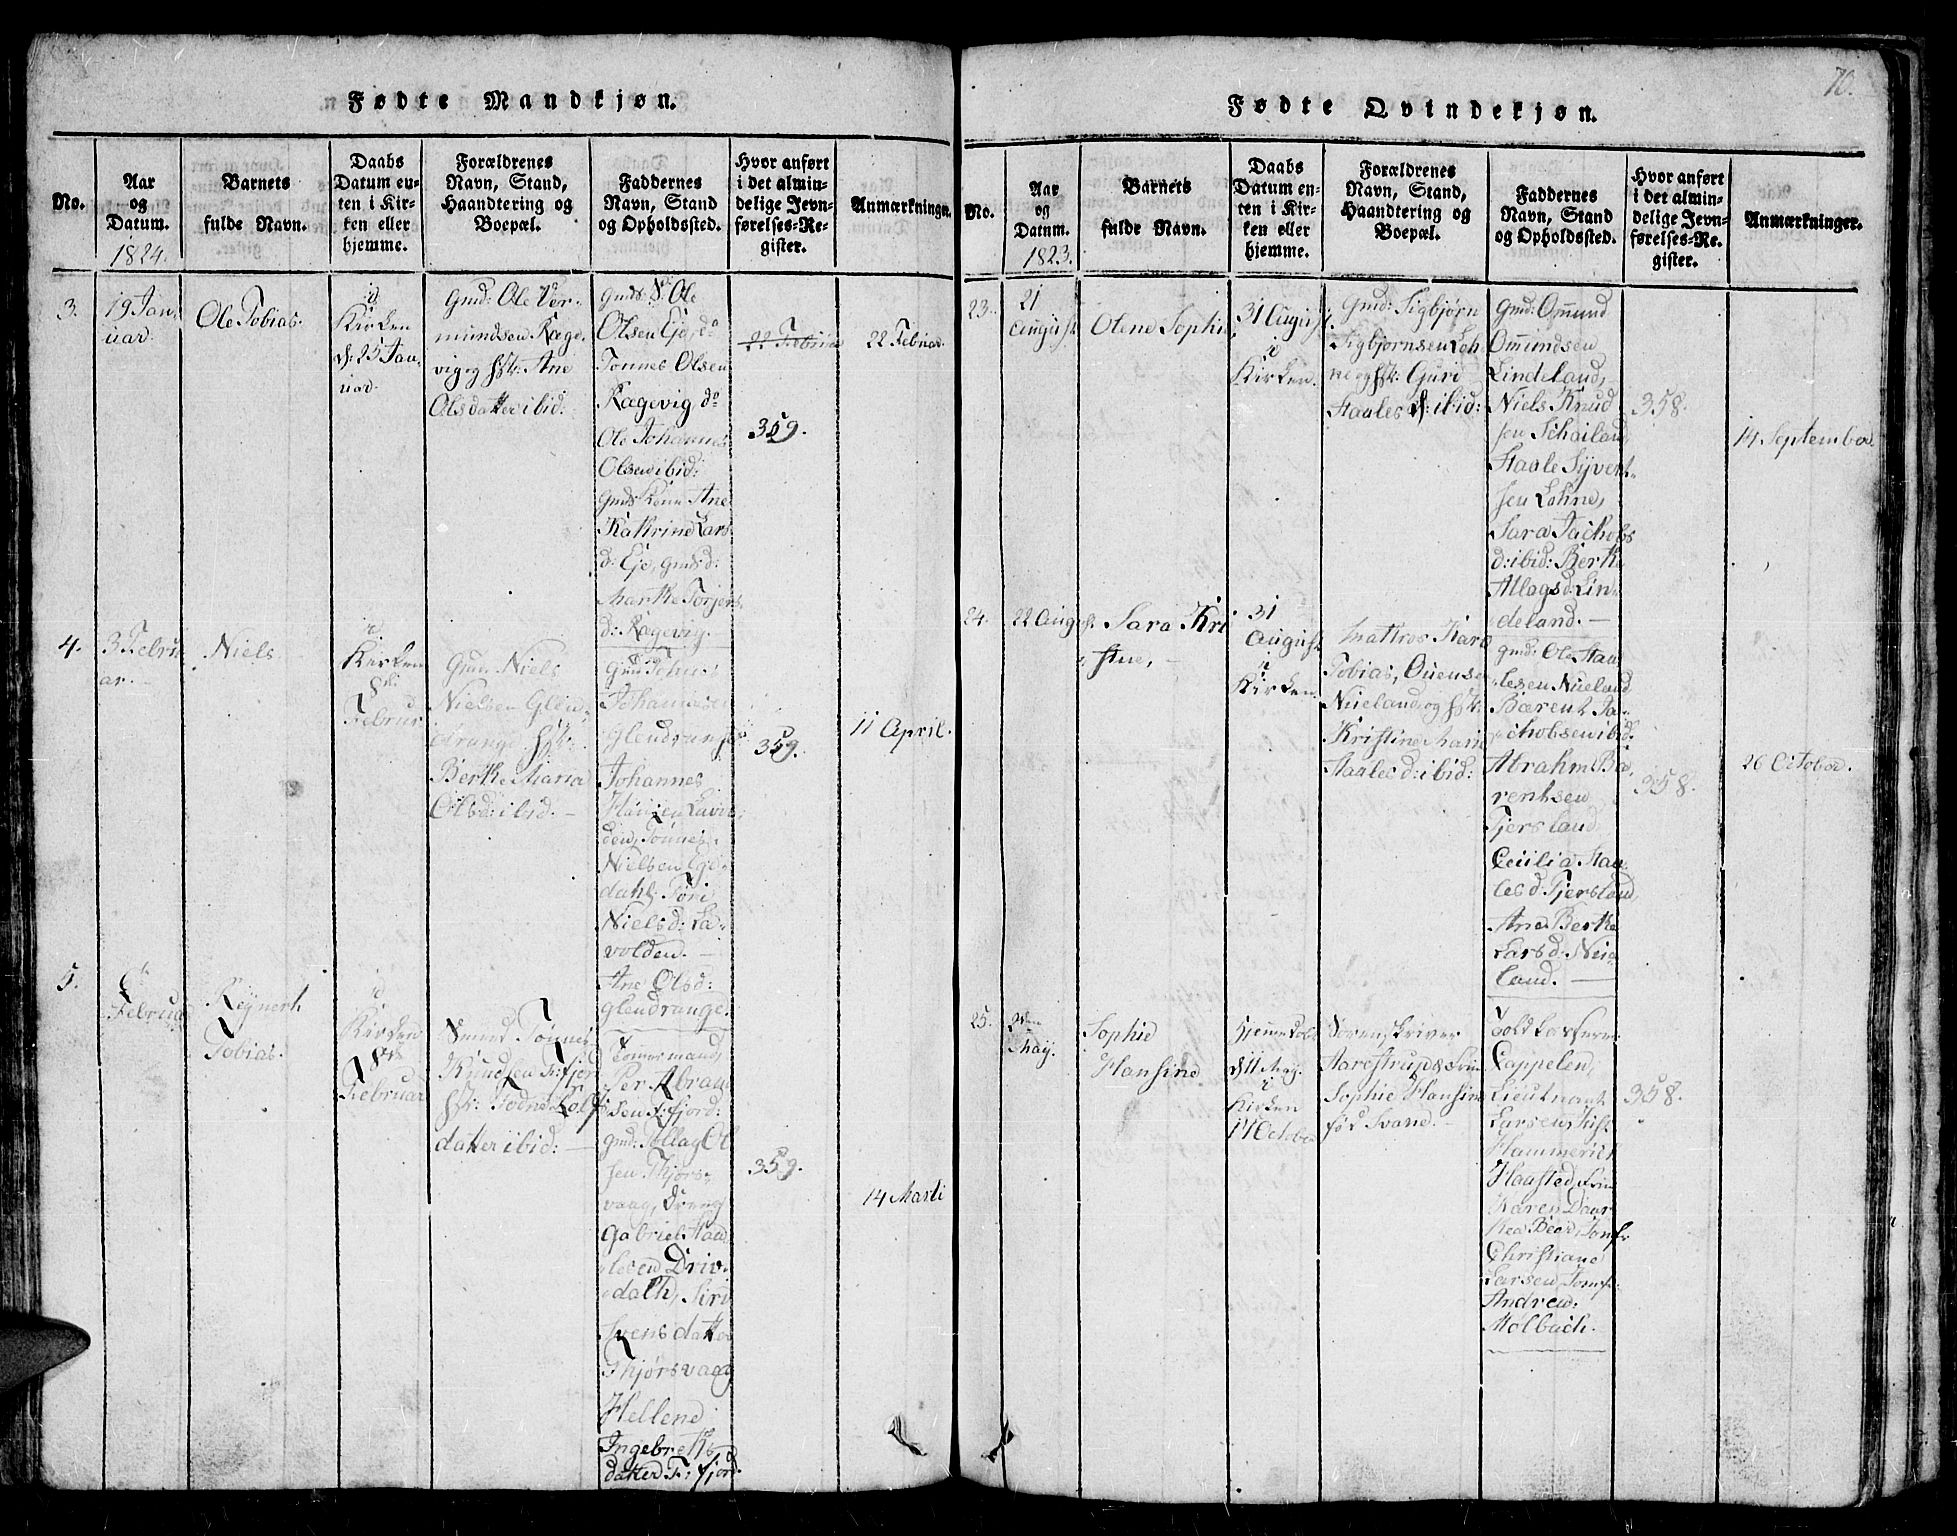 70.
Fødte Mandkjøn.
No.
Aar
og
Datum.
1824.
Barnets
fulde Navn.
Daabs
Datum en-
ten i Kir-
ken eller
hjemme.
Forældrenes
Navn, Stand,
Haandtering og
Boepæl.
Faddernes
Navn, Stand
og Opholdssted.
Hvor anført
i det almin-
delige Jevn-
førelses-Re-
gister.
Anmærkninger.
3.
19 Jan-
uar.
Ole Tobias.
i
Kirken
d: 25 Jan-
uar.
Gmd: Ole Ver-
mundsen Rage-
vig og Hst: Ane
Olsdatter ibid:
Gmds: S: Ole
Olsen Eje, do
Tønnes Olsen
Ragevig do
Ole Johannes
Olsen ibid:
Gmds Kone Ane
Kathrine Lars
d: Eje, gmds d:
Marthe Torjers
d: Ragevig.
22 Februar
359.
22 Februar.
4.
3 Febru
ar.
Niels.
i
Kirken
8de
Februar
Gmd. Niels
Nielsen Glen-
drange, Hst:
Berthe Maria
Olsd: ibid.
Gmd:
Johannesen
Glendrange
Johannes
Hansen
den, Tønnes
Nielsen Ege-
dahl, Tøri
Nielsd: La-
volden.
Ane Olsd:
Glendrange.
359.
11 April.
5.
Februar
Reynert
Tobias.
i
Kirken
8de
Februar
Tønnes
Knudsen F: fjor
Hst:
datter ibid:
Tømermand,
Per Abram
sen F: fjord:
gmd: Tollag Ol
sen Thjørs-
vaag, Dreng
Gabriel Haa
lesen Driv-
dalh, Siri
Svensdatter
Thjørsvaag
Hellene
Ingebrekts
datter F: fjord.
359.
14 Marti
Fødte Qvindekjøn.
No.
Aar
og
Datum.
1823.
Barnets
fulde Navn.
Daabs
Datum en-
ten i Kir-
ken eller
hjemme.
Forældrenes
Navn, Stand,
Haandtering og
Boepæl.
Faddernes
Navn, Stand
og Opholdssted.
Hvor anført
i det almin-
delige Jevn-
førelses-Re-
gister.
Anmærkninger.
23.
21
August
Olene Sophie
31 August
i
Kirken.
Gmd: Sigbjørn
Sigbjørnsen Loh
ne og Hst: Guri
Haales d: ibid:
Gmd: Ommund
Ommundsen
Lindeland,
Niels Knud
sen Schailand
Haale Syvert
sen Lohne,
Sara Jachobs
d: ibid: Berthe
Allagsd: Lin-
deland.
358.
14 September
24.
22 August
Sara Kri
stine,
31
August
i
Kirken.
Matros Karl
Tobias, Ouensen
Nueland og Hst:
Kristine Marie
Haales d: ibid:
gmd: Ole Haa-
lesen Nueland
Bærent Ja-
chobsen ibid.
Abraham Bæ-
rentsen
Fjersland,
Cecilia Haa
les d. Fjersland,
Ane Berthe
Lars d: Nue-
land.
358.
26 October.
25.
2den
May.
Sophie
Hansine
Hjemmedøbt
d 11 May.
i
Kirken
17 October
Sorenskriver
Aarestrup &
Sophie Hansine
fød Svane.
Toldkasserer
Cappelen,
Lieutnant
Larsen,
Hammerich
Haasted,
Karen
Beer, Jomfr
Christiane
Larsen, Jomfr:
Andrea:
Molbach.
358.